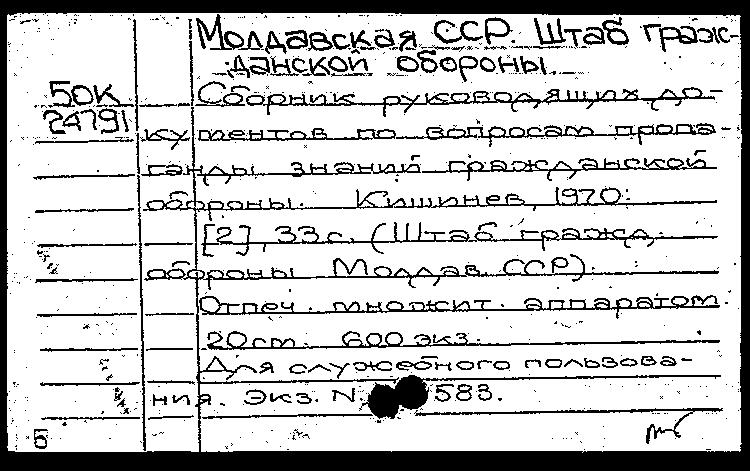 Молдавская ССР. Штаб граж-
данской обороны.
50К Сборник руководящих до-
24791 кументов по вопросам пропа-
ганды знаний гражданской
обороны. Кишинев, 1970.
[2], 33 с. (Штаб гражд.
обороны Молдав. ССР).
Отпеч. множит. аппаратом.
20 см. 600 экз.
Для служебного пользова-
ния. Экз. N 583.
Б